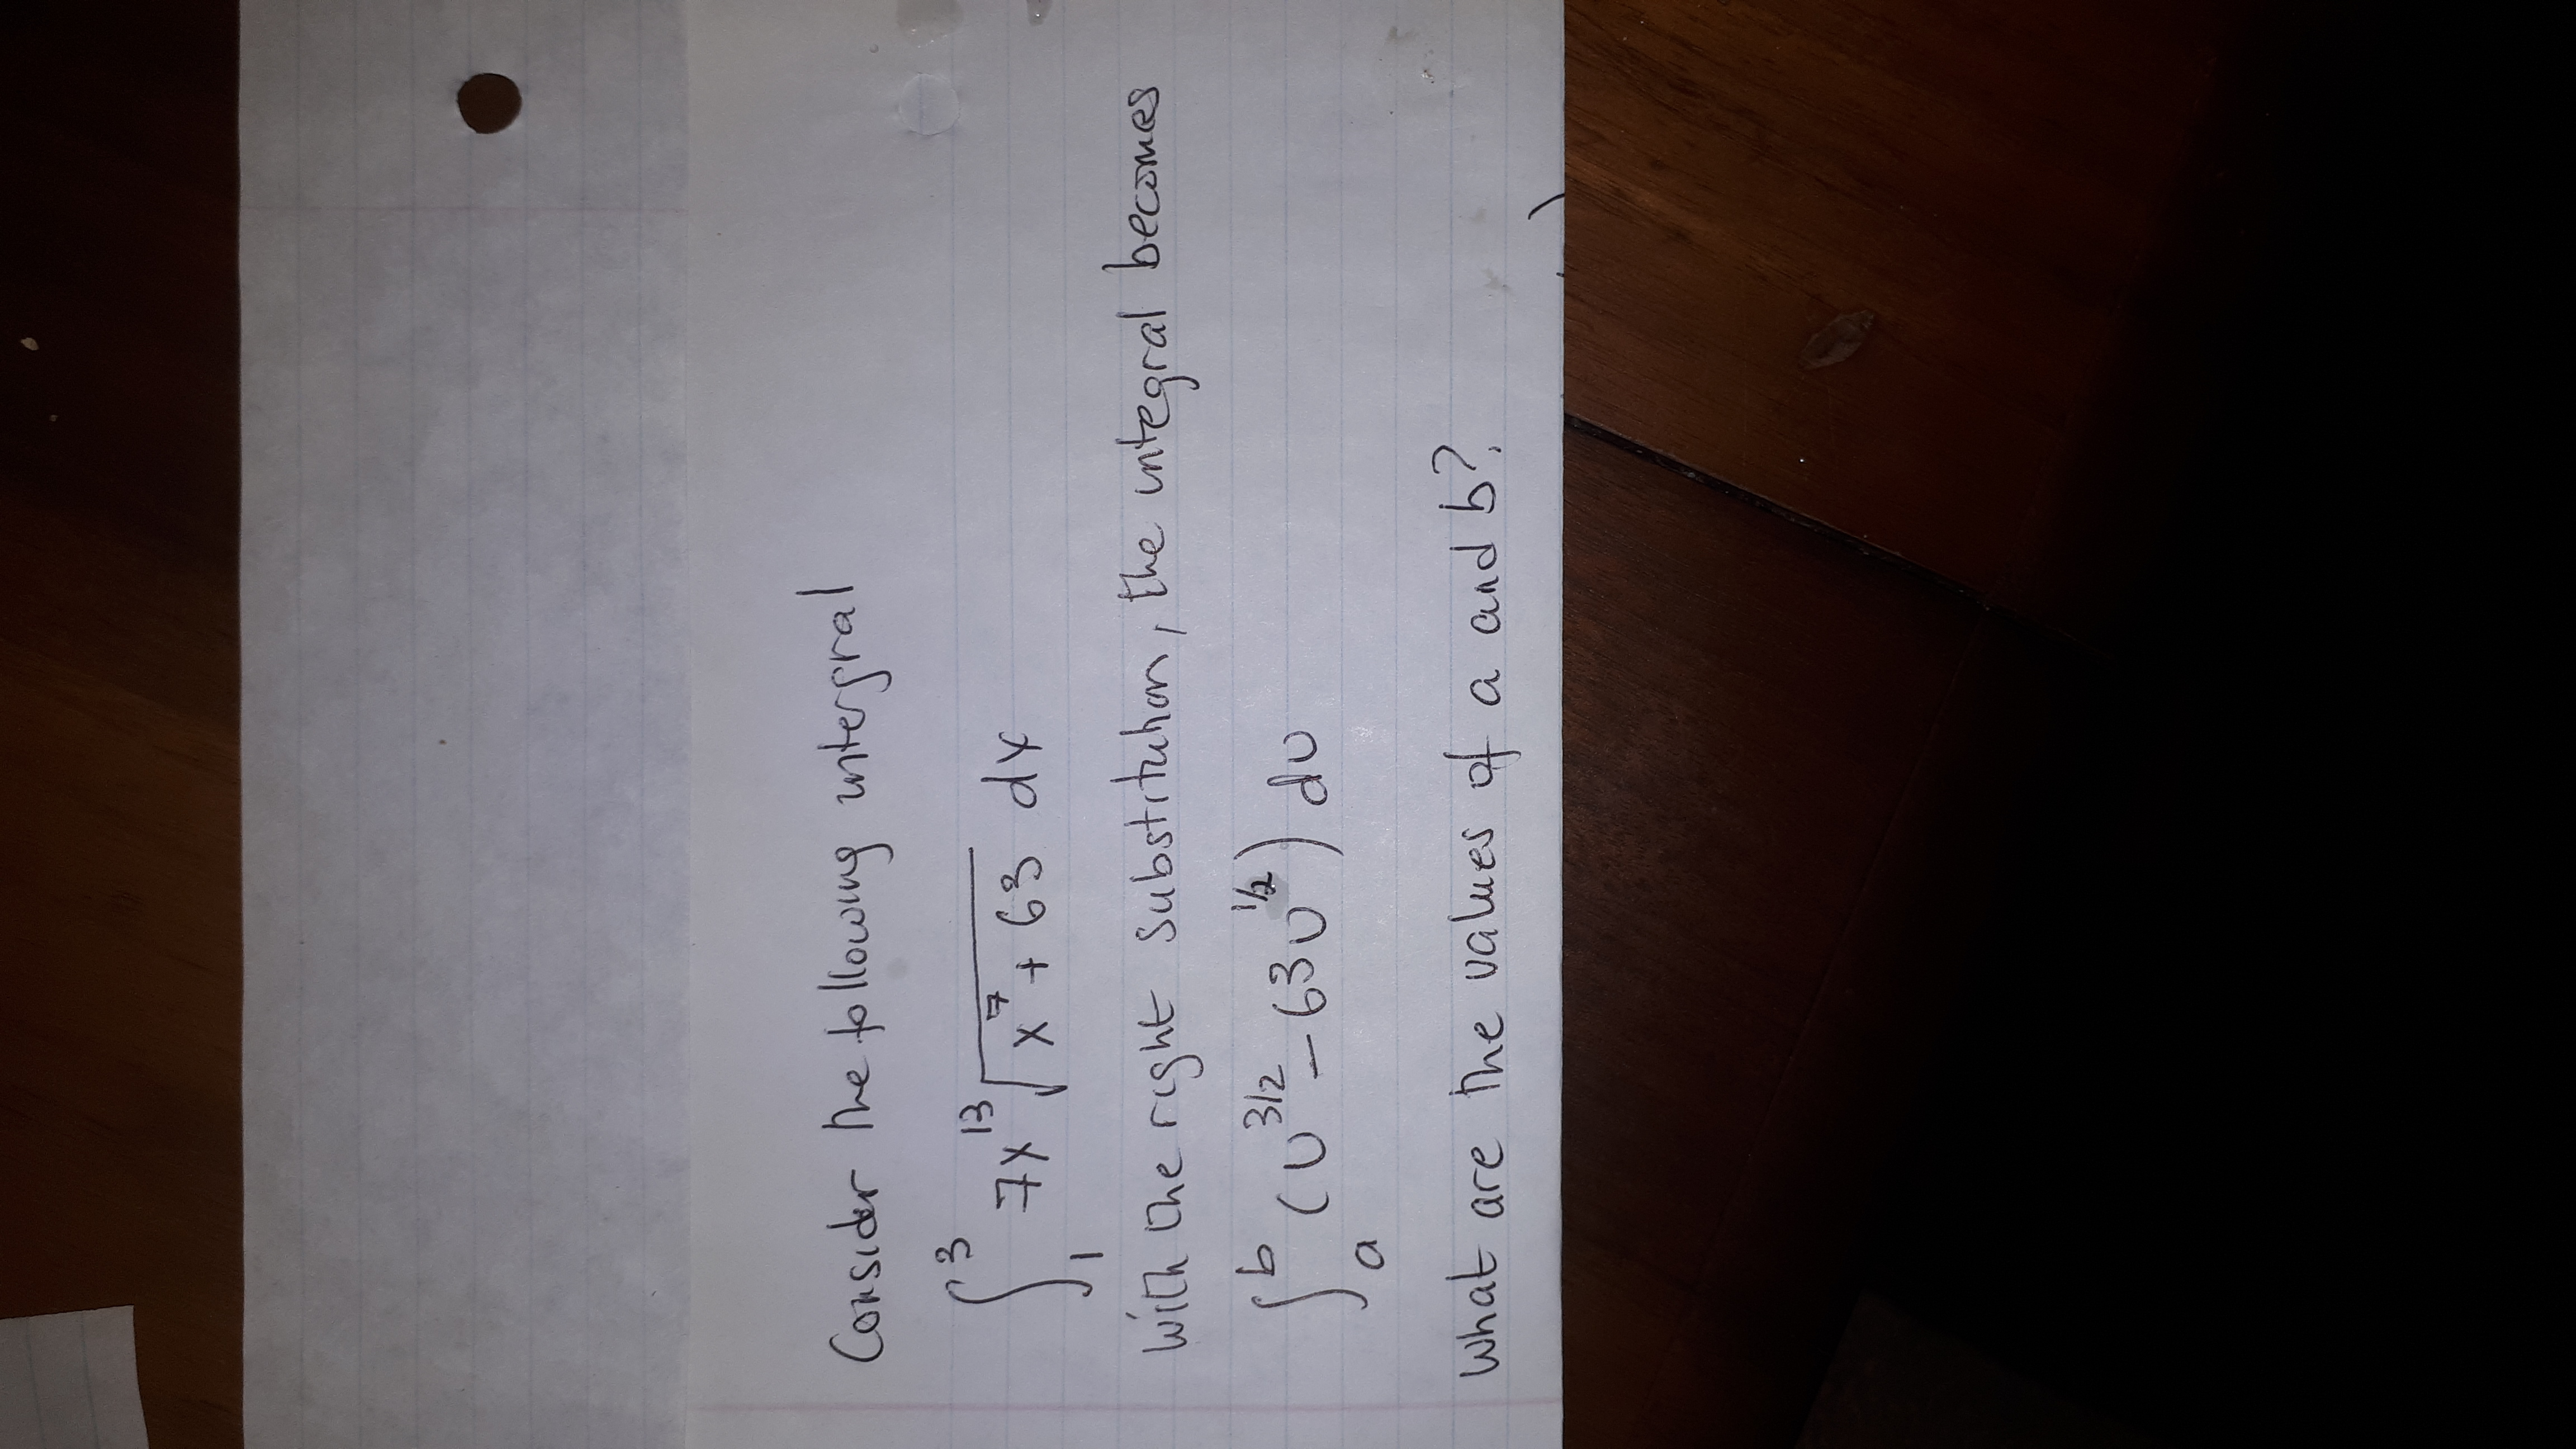 Consider the following intergral
∫₁³ 7x¹³ √(x⁷ + 63) dx
With the right substitution, the integral becomes
∫ₐᵇ (u^3/2 – 63u^1/2) du
What are the values of a and b?.